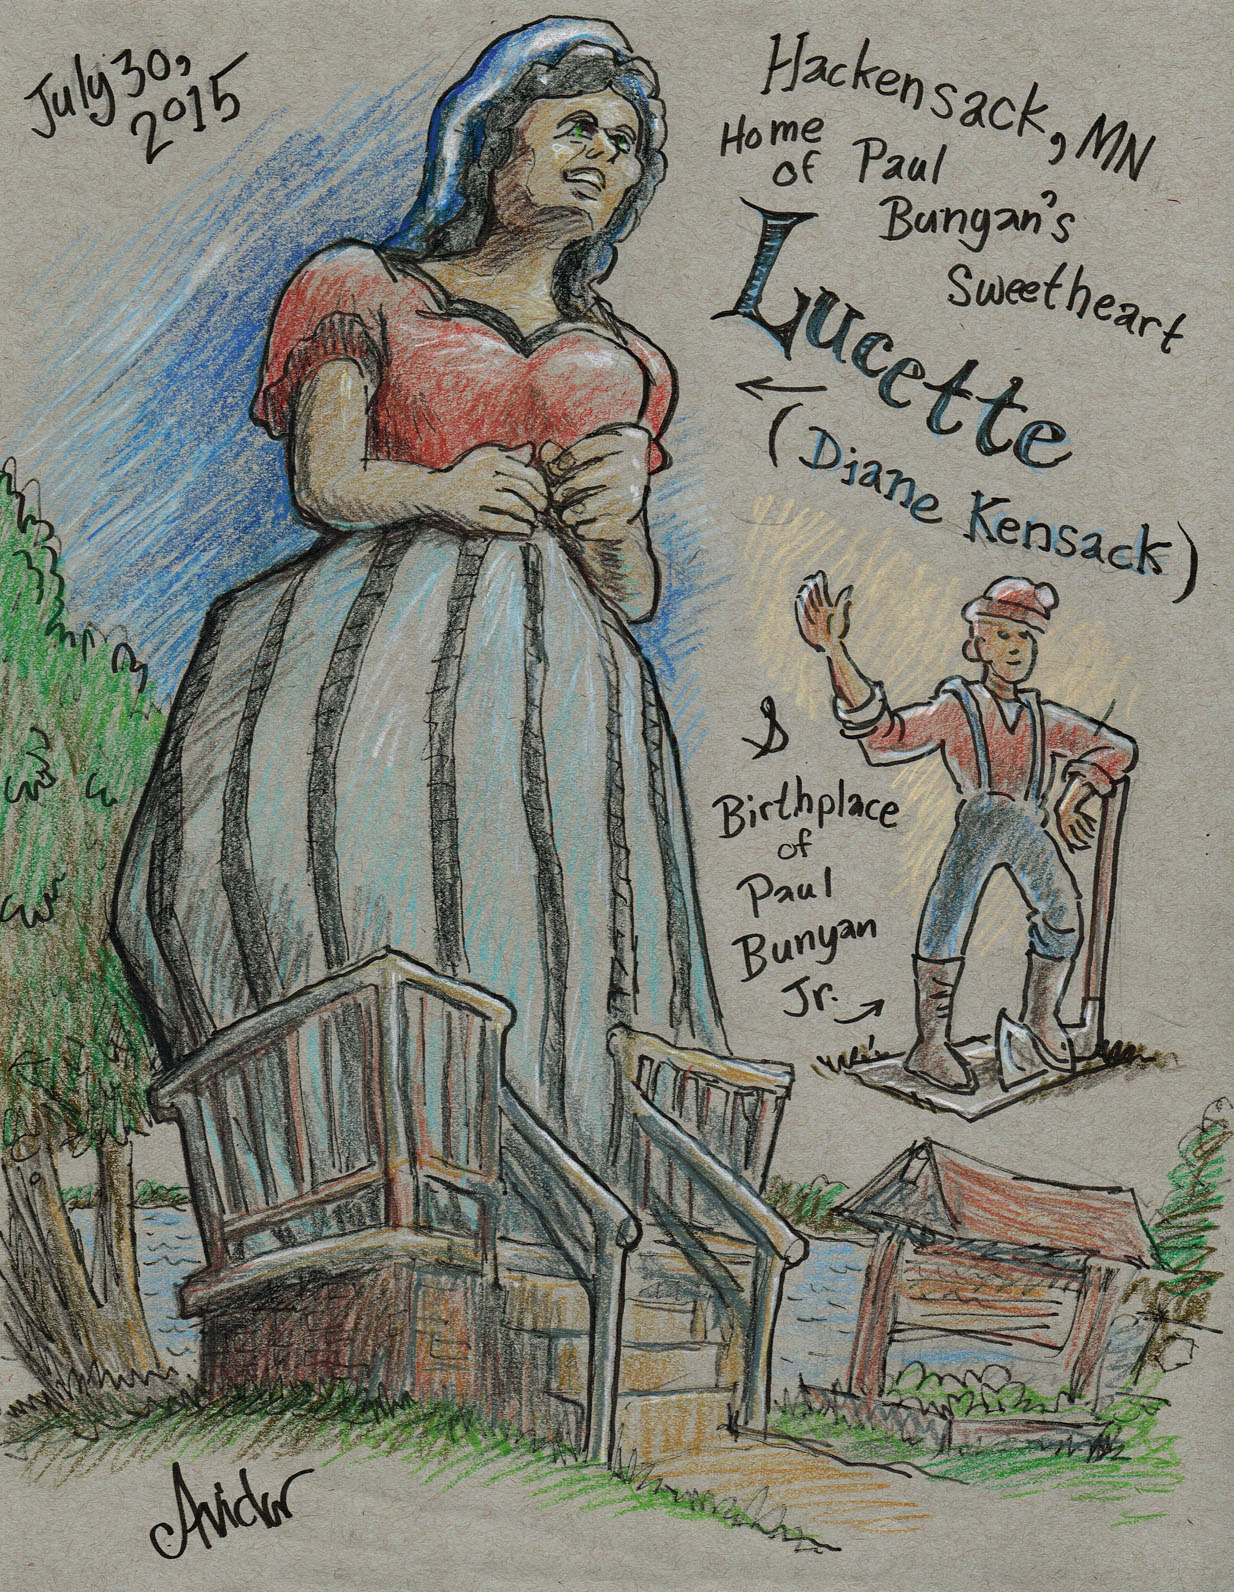 July 30,
2015
Hackensack, MN
Home
of Paul
Bunyan's
Sweetheart
Lucette
(Diane Kensack)
&
Birthplace
of
Paul
Bunyan
Jr.
Avidor